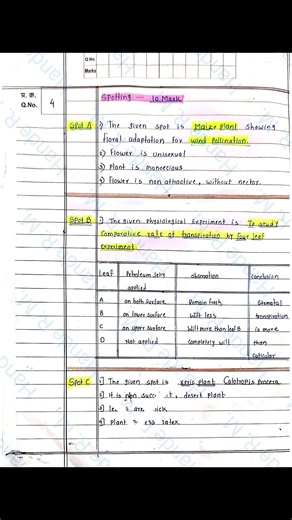 Q.No.
Marks
प्र. क्र.
Q.No. 4
Spotting — 10 Mark
Spot A 1) The given spot is Maize plant showing
floral adaptation for wind Pollination.
2) Flower is unisexual
3) Plant is monoecious
4) Flower is non attractive, without nector.
Spot B 1] The given Physiological Experiment is To study
Comparative rate of transpiration by four leaf
experiment.
Leaf Petroleum Jelly obsrvation conclusion
applied
A on both surface Remain fresh Stomatal
B on lower surface Wilt less transpiration
C on upper surface Will more than leaf B is more
D Not applied Completely will than
cuticular
Spot C 1] The given spot is xeric plant Calotropis procera
2] It is non desert plant
3] are
4] Plant latex
Hande R M